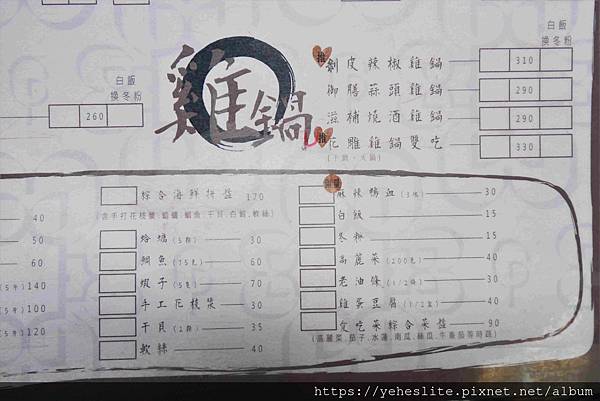 白飯
換冬粉
260
雞鍋
白飯
換冬粉
推 剝皮辣椒雞鍋 310
御膳蒜頭雞鍋 290
滋補燒酒雞鍋 290
推 花雕雞鍋雙吃 330
40
50
60
(5串)140
(5串)100
(5串)120
綜合海鮮拼盤 170
(含手打花枝漿.蛤蠣.鯛魚.干貝.白蝦.軟絲)
蛤蠣(5顆) 30
鯛魚(75克) 60
蝦子(5隻) 70
手工花枝漿 30
干貝(2顆) 35
軟絲 40
麻辣鴨血(3塊) 30
白飯 15
冬粉 15
高麗菜(200克) 40
老油條(1/2條) 30
雞蛋豆腐(1/2盒) 40
愛吃菜綜合菜盤 90
(高麗菜.茄子.水蓮.南瓜.絲瓜.牛番茄等時蔬)
https://yeheslite.pixnet.net/album